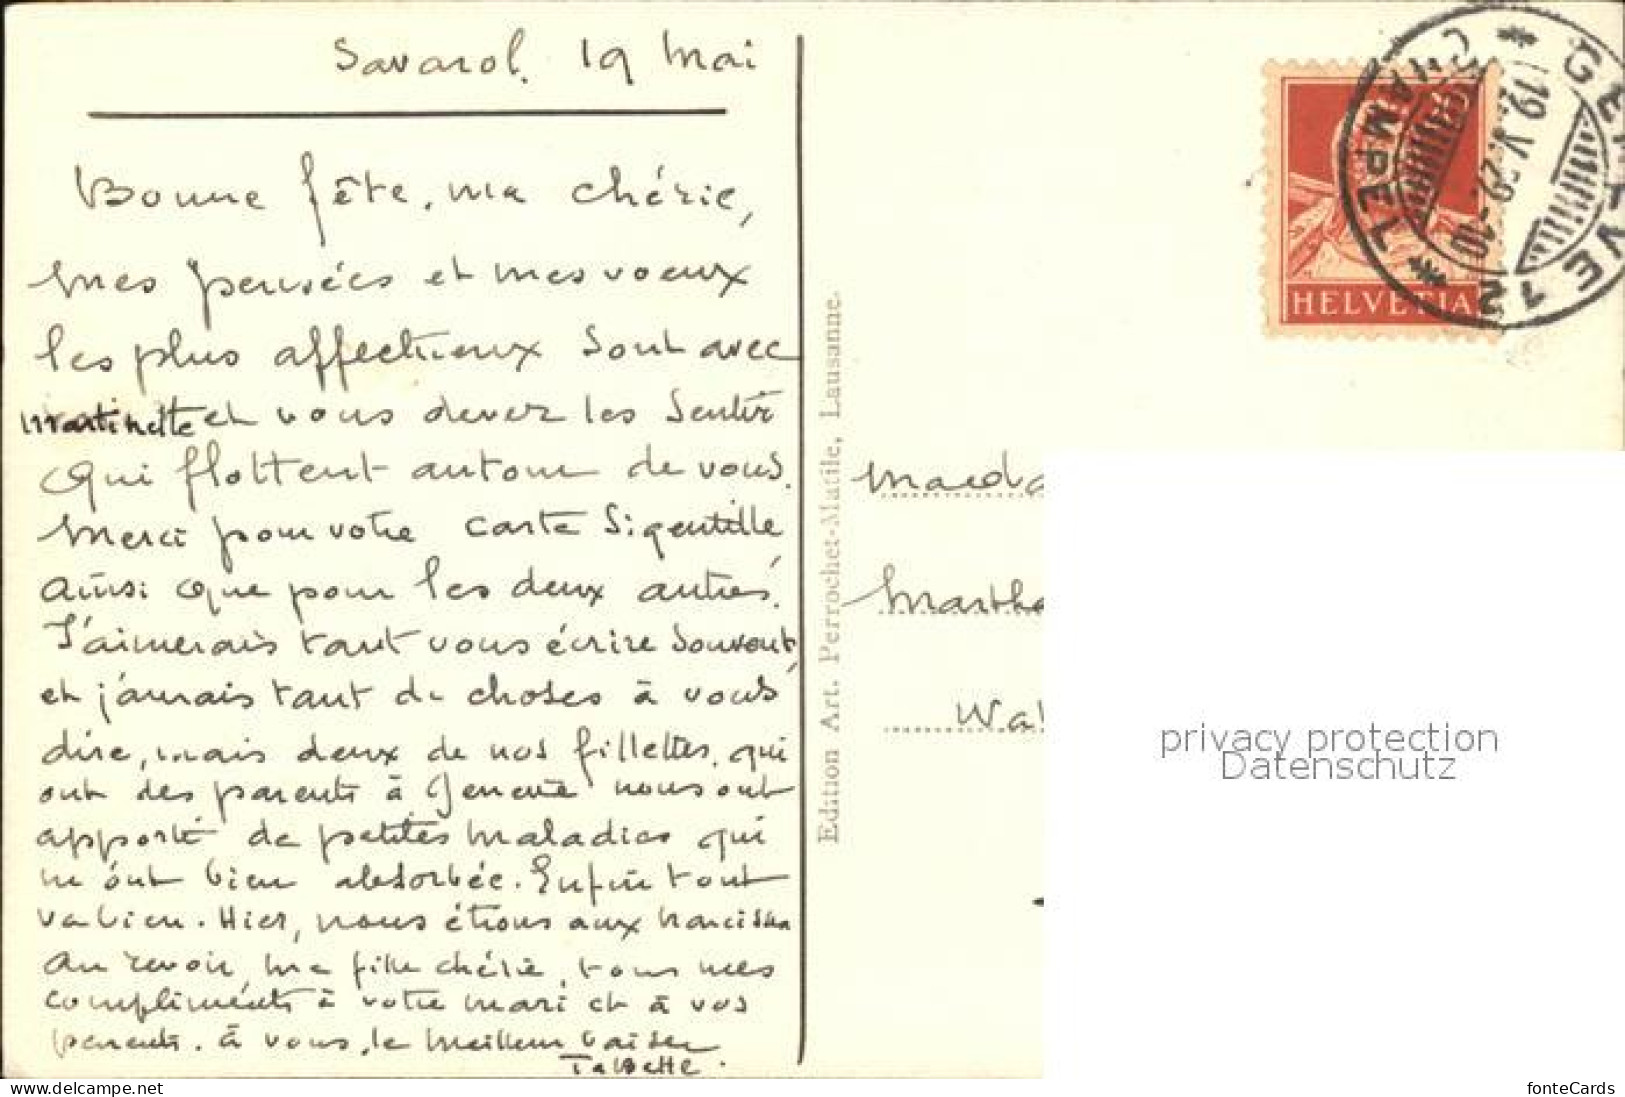 19 Mai
Bonne fête, ma chérie,
mes pensées et mes voeux
les plus affectueux sont avec
Martinette et vous devez les sentir
qui flottent autour de vous.
Merci pour votre carte si gentille
ainsi que pour les deux autres.
J'aimerais tant vous écrire souvent,
et j'aurais tant de choses à vous
dire, mais deux de nos fillettes, qui
ont des parents à Genève nous ont
apporté de petites maladies qui
m'ont bien absorbée. Enfin tout
va bien. Hier, nous étions aux narcisses
au revoir, ma fille chérie, tous mes
compliments à votre mari et à vos
parents. à vous, le meilleur baiser
Edition Art. Perrochet-Matile, Lausanne.
HELVETIA
GENÈVE 12
CHAMPEL
19.V.29.-10
Mada
Marthe
Wa
privacy protection
Datenschutz
fonteCards